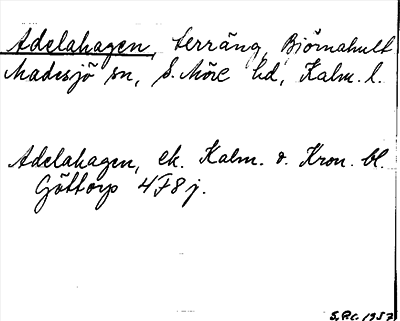 Adelahagen, terräng, Björnahult
Madesjö sn, S. Möre hd, Kalm. l.
Adelahagen, ek. Kalm. v. Kron. bl.
Göttorp 4F8j.
S.R.C. 1957